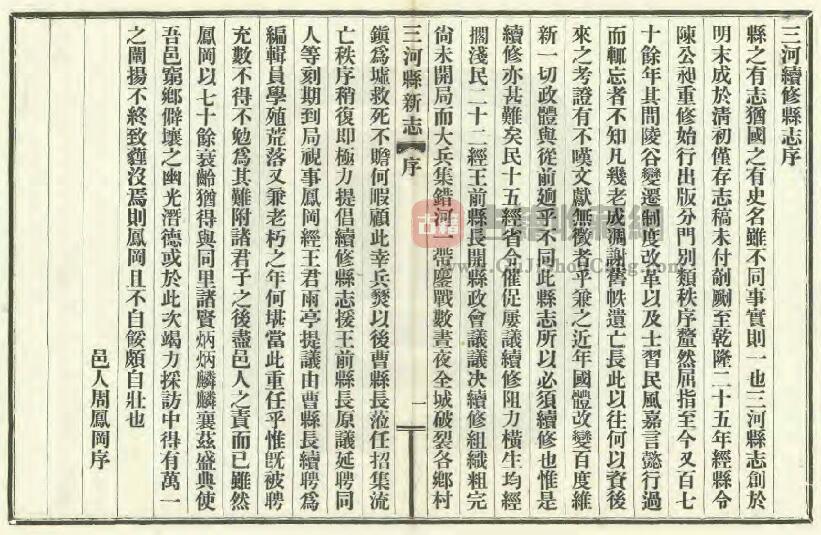 三河續修縣志序
縣之有志猶國之有史名雖不同事實則一也三河縣志創於
明末成於清初僅存志稿未付剞劂至乾隆二十五年經縣令
陳公昶重修始行出版分門別類秩序釐然屈指至今又百七
十餘年其間陵谷變遷制度改革以及士習民風嘉言懿行過
而輒忘者不知凡幾老成凋謝舊帙遺亡長此以往何以資後
來之考證有不嘆文獻無徵者乎兼之近年國體改變百度維
新一切政體與從前迥乎不同此縣志所以必須續修也惟是
續修亦甚難矣民十五經省令催促屢議續修阻力橫生均經
擱淺民二十二經王前縣長開縣政會議議决續修組織粗完
尙未開局而大兵集錯河一帶鏖戰數晝夜全城破裂各鄉村
三河縣新志 序 一
鎮爲墟救死不贍何暇顧此幸兵燹以後曹縣長蒞任招集流
亡秩序稍復即極力提倡續修縣志援王前縣長原議延聘同
人等刻期到局視事鳳岡經王君雨亭提議由曹縣長續聘爲
編輯員學殖荒落又兼老朽之年何堪當此重任乎惟旣被聘
充數不得不勉爲其難附諸君子之後盡邑人之責而已雖然
鳳岡以七十餘衰齡猶得與同里諸賢炳炳麟麟襄茲盛典使
吾邑窮鄉僻壤之幽光潛德或於此次竭力採訪中得有萬一
之闡揚不終致薶沒焉則鳳岡且不自餒頗自壯也
邑人周鳳岡序